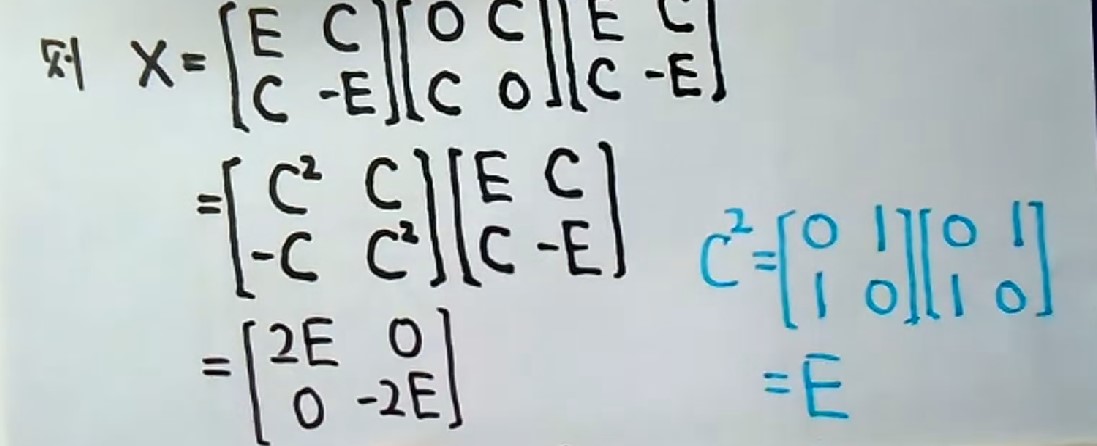 则 X = [E C; C -E] [0 C; C 0] [E C; C -E]
= [C² C; -C C²] [E C; C -E]
= [2E 0; 0 -2E]
C² = [0 1; 1 0] [0 1; 1 0]
= E